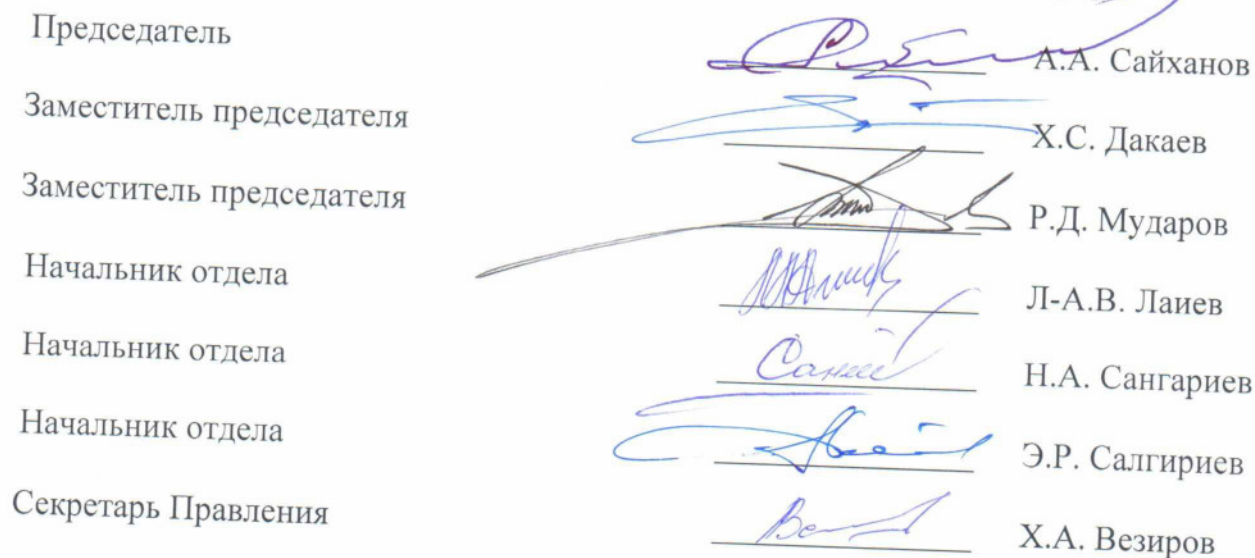 Председатель А.А. Сайханов
Заместитель председателя Х.С. Дакаев
Заместитель председателя Р.Д. Мударов
Начальник отдела Л-А.В. Лаиев
Начальник отдела Н.А. Сангариев
Начальник отдела Э.Р. Салгириев
Секретарь Правления Х.А. Везиров